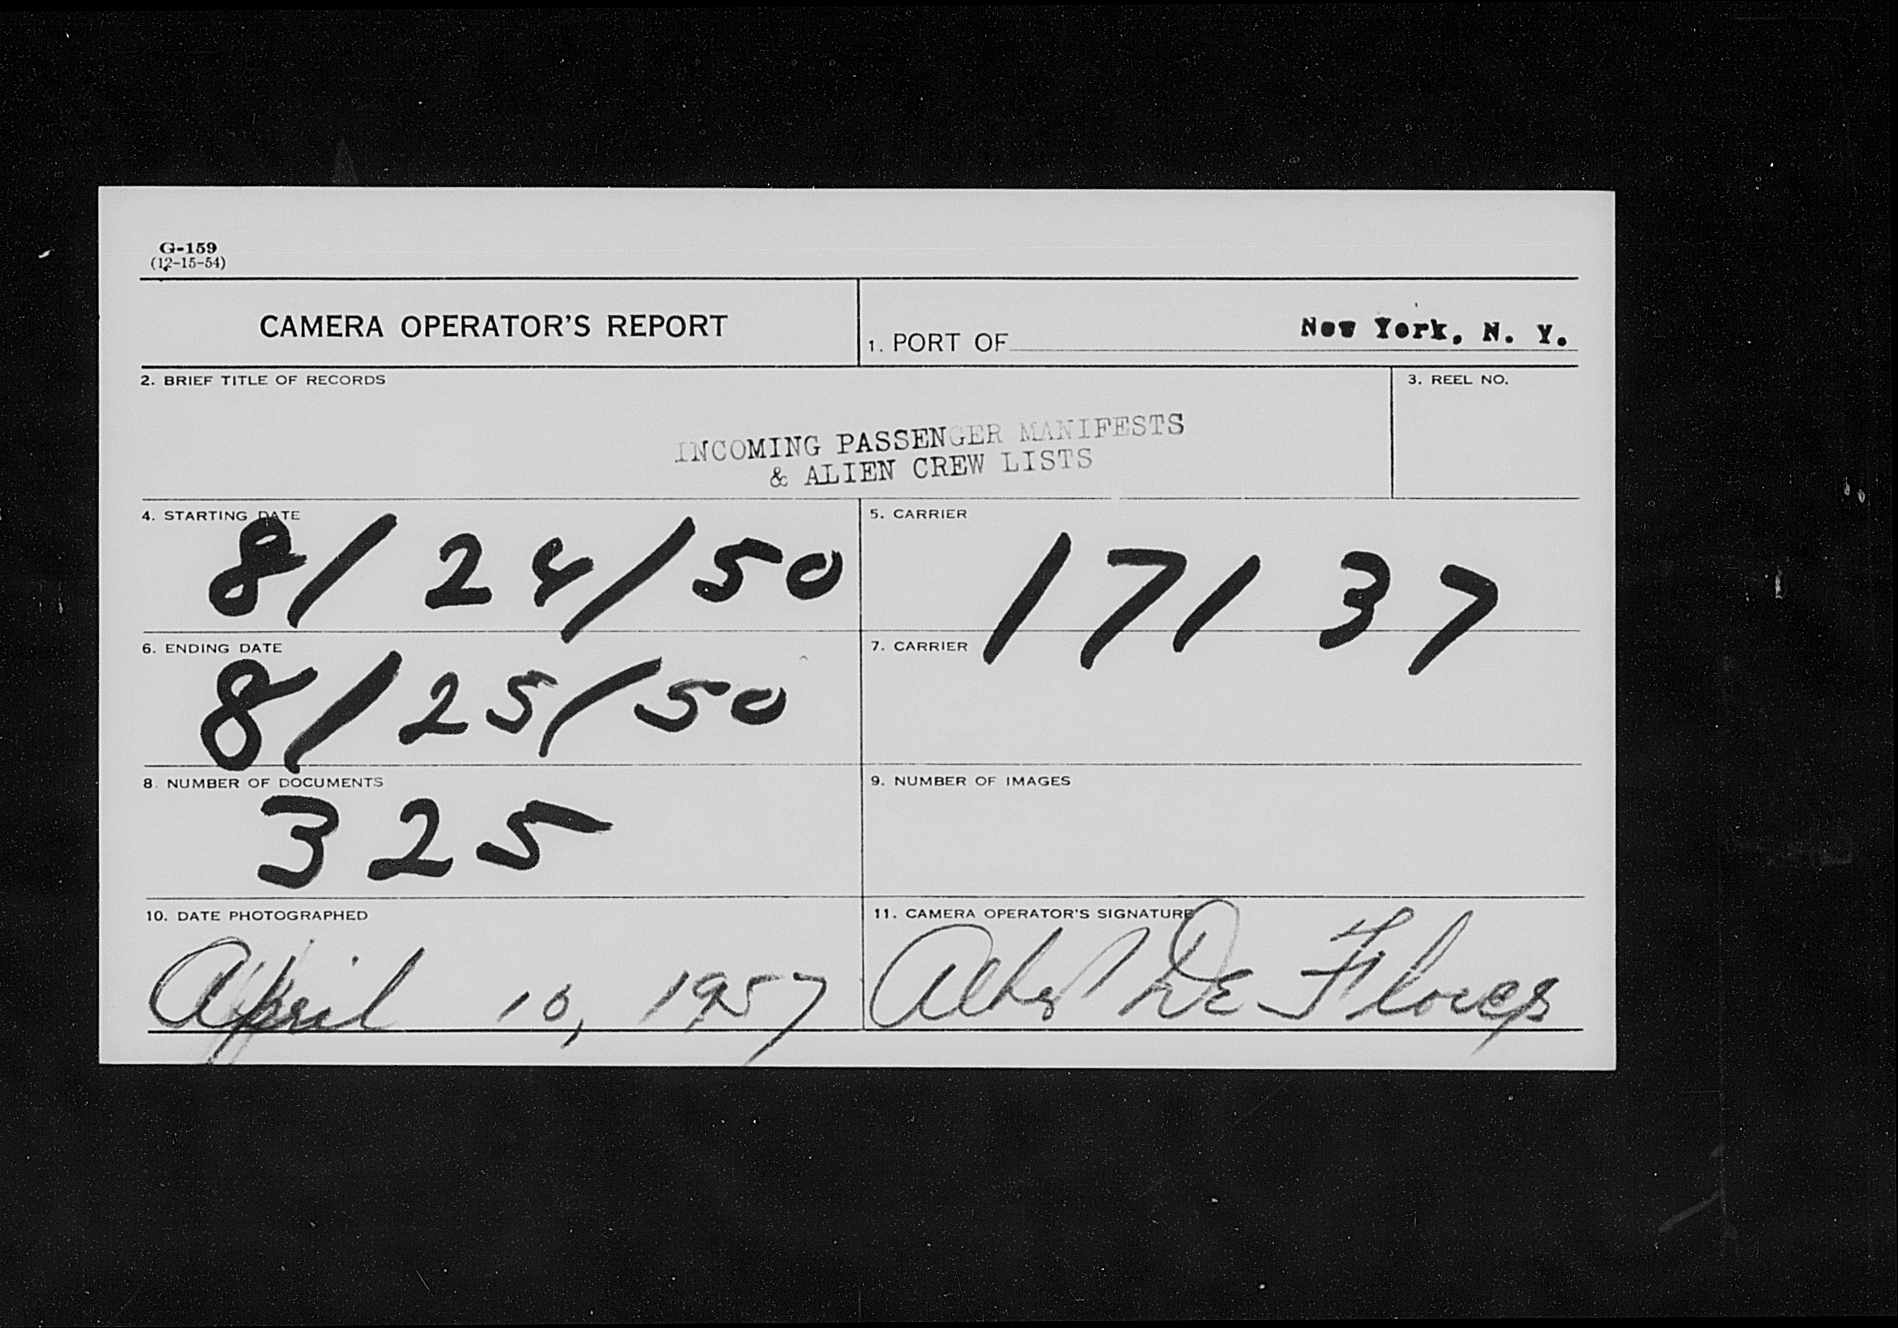 G-159
(12-15-54)
CAMERA OPERATOR'S REPORT
1. PORT OF New York, N. Y.
2. BRIEF TITLE OF RECORDS
INCOMING PASSENGER MANIFESTS
& ALIEN CREW LISTS
3. REEL NO.
4. STARTING DATE
8/24/50
5. CARRIER
17137
6. ENDING DATE
8/25/50
7. CARRIER
8. NUMBER OF DOCUMENTS
325
9. NUMBER OF IMAGES
10. DATE PHOTOGRAPHED
April 10, 1957
11. CAMERA OPERATOR'S SIGNATURE
Albert De Flores